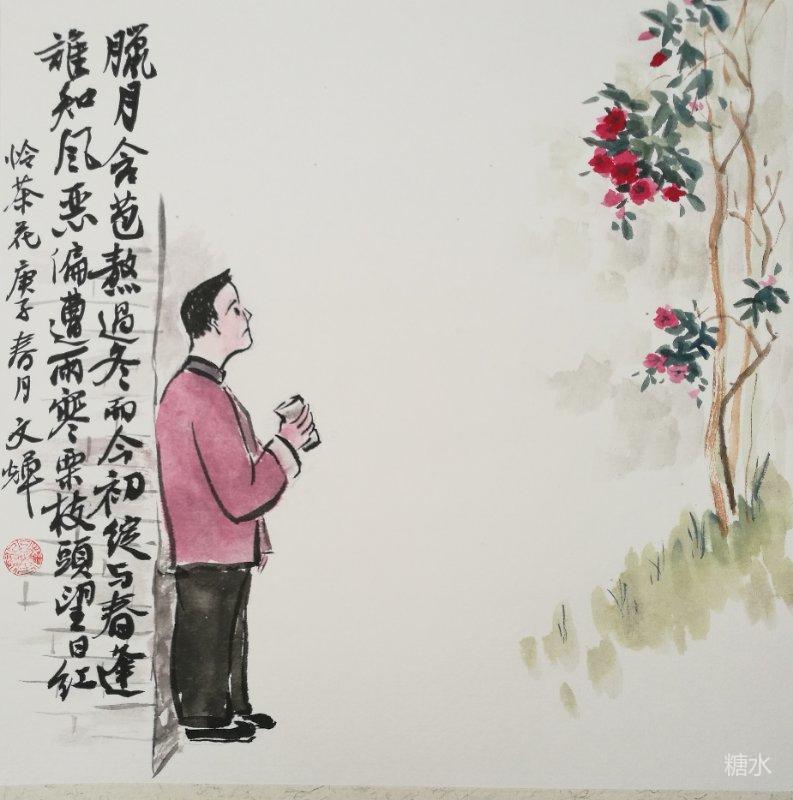 臘月含苞熬過冬而今初綻与春逢
誰知風惡偏遭雨寒栗枝頭望日红
怜茶花庚子春月文輝
糖水